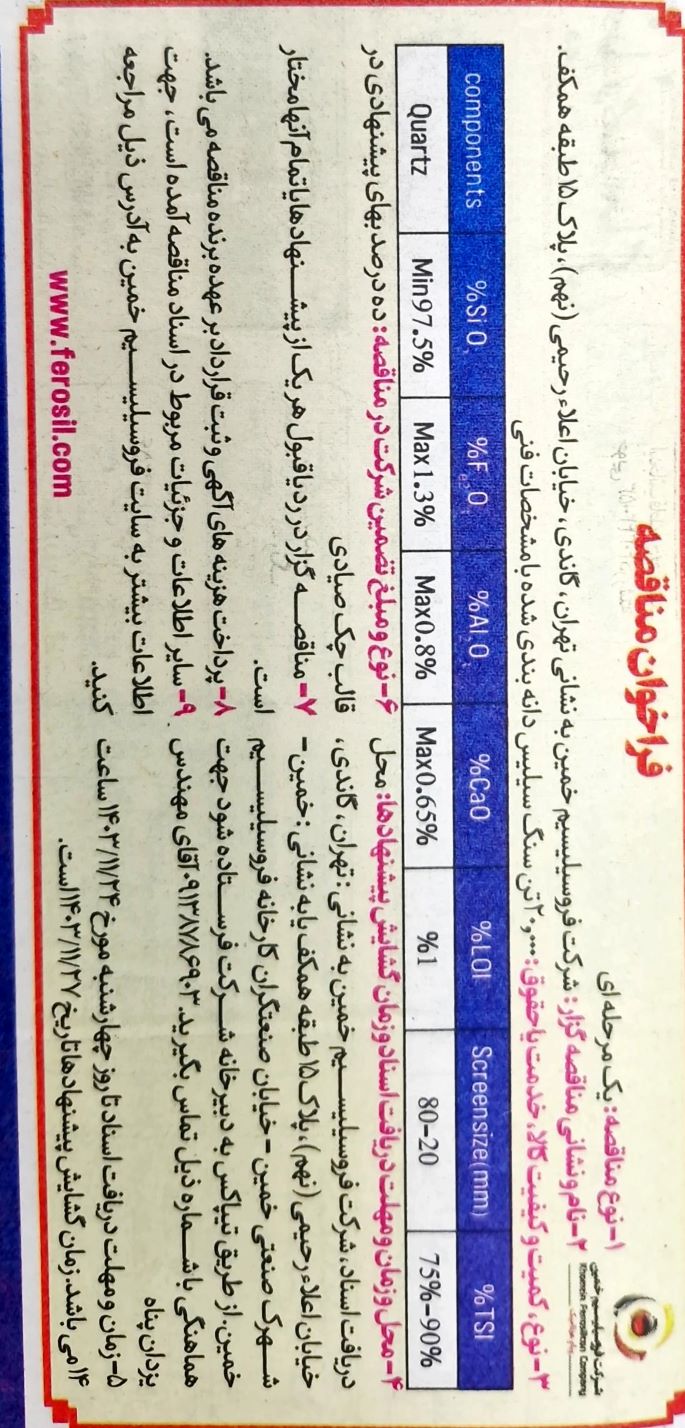 فراخوان مناقصه
شرکت فروسیلیسیم خمین
Khomein Ferosilicon Company
۱- نوع مناقصه: یک مرحله ای
۲- نام و نشانی مناقصه گزار: شرکت فروسیلیسیم خمین به نشانی تهران، گاندی، خیابان اعلاء رحیمی (نهم)، پلاک ۱۵ طبقه همکف.
۳- نوع، کمیت و کیفیت کالا، خدمت یا حقوق: ۲۰،۰۰۰ تن سنگ سیلیس دانه بندی شده با مشخصات فنی
components %SiO %Fe2O3 %Al2O3 %CaO %LOI Screensize(mm) %TSI
Quartz Min97.5% Max1.3% Max0.8% Max0.65% %1 80-20 75%-90%
۴- محل و زمان و مهلت دریافت اسناد و زمان گشایش پیشنهادها: محل
دریافت اسناد، شرکت فروسیلیسیم خمین به نشانی: تهران، گاندی،
خیابان اعلاء رحیمی (نهم)، پلاک ۱۵ طبقه همکف یا به نشانی: خمین-
شهرک صنعتی خمین - خیابان صنعتگران کارخانه فروسیلیسیم
خمین. از طریق تیپاکس به دبیرخانه شرکت فرستاده شود جهت
هماهنگی با شماره ذیل تماس بگیرید. ۰۹۱۳۸۷۸۶۹۰۳ آقای مهندس
یزدان پناه
۵- زمان و مهلت دریافت اسناد تا روز چهارشنبه مورخ ۱۴۰۳/۱۱/۲۴ ساعت
۱۴ می باشد. زمان گشایش پیشنهادها تاریخ ۱۴۰۳/۱۱/۲۷ است.
۶- نوع و مبلغ تضمین شرکت در مناقصه: ده درصد بهای پیشنهادی در
قالب چک صیادی
۷- مناقصه گزار در رد یا قبول هر یک از پیشنهادها یا تمام آنها مختار
است.
۸- پرداخت هزینه های آگهی و ثبت قرارداد بر عهده برنده مناقصه می باشد.
۹- سایر اطلاعات و جزئیات مربوط در اسناد مناقصه آمده است، جهت
اطلاعات بیشتر به سایت فروسیلیسیم خمین به آدرس ذیل مراجعه
کنید.
www.ferosil.com